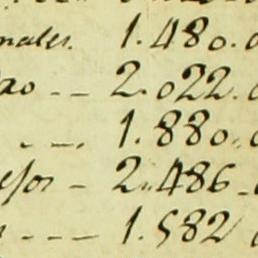 nales. 1.480.
ao -- 2.022.
-. 1.880.
- 2.486-
--- 1.582